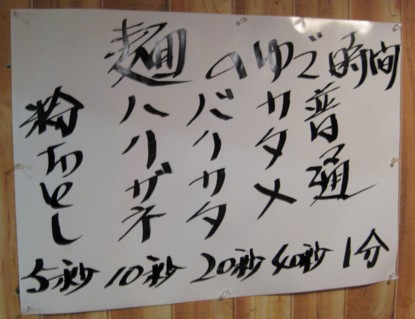 麺のゆで時間
普通
カタメ
バリカタ
ハリガネ
粉おとし
5秒 10秒 20秒 40秒 1分